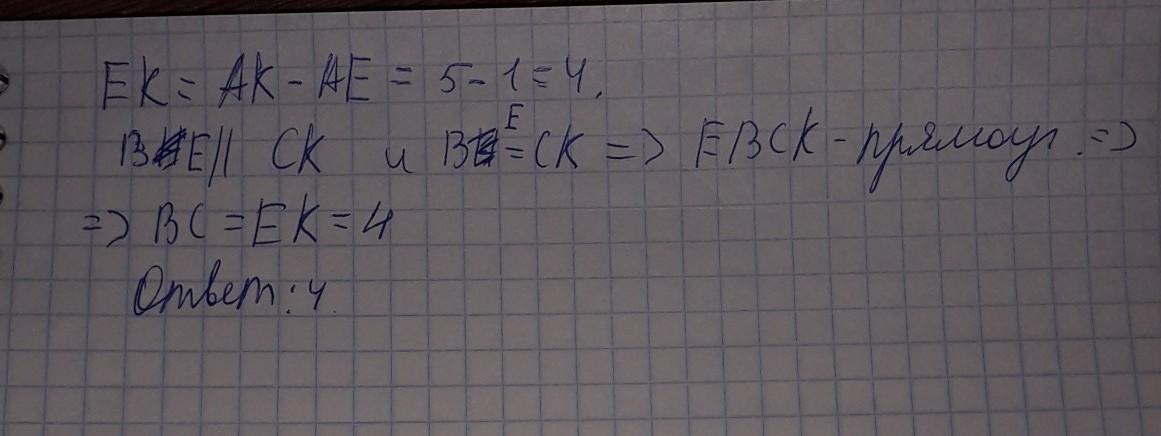 EK = AK - AE = 5 - 1 = 4.
BE || CK и BE = CK => EBCK - прямоуг. =>
=> BC = EK = 4
Ответ: 4.